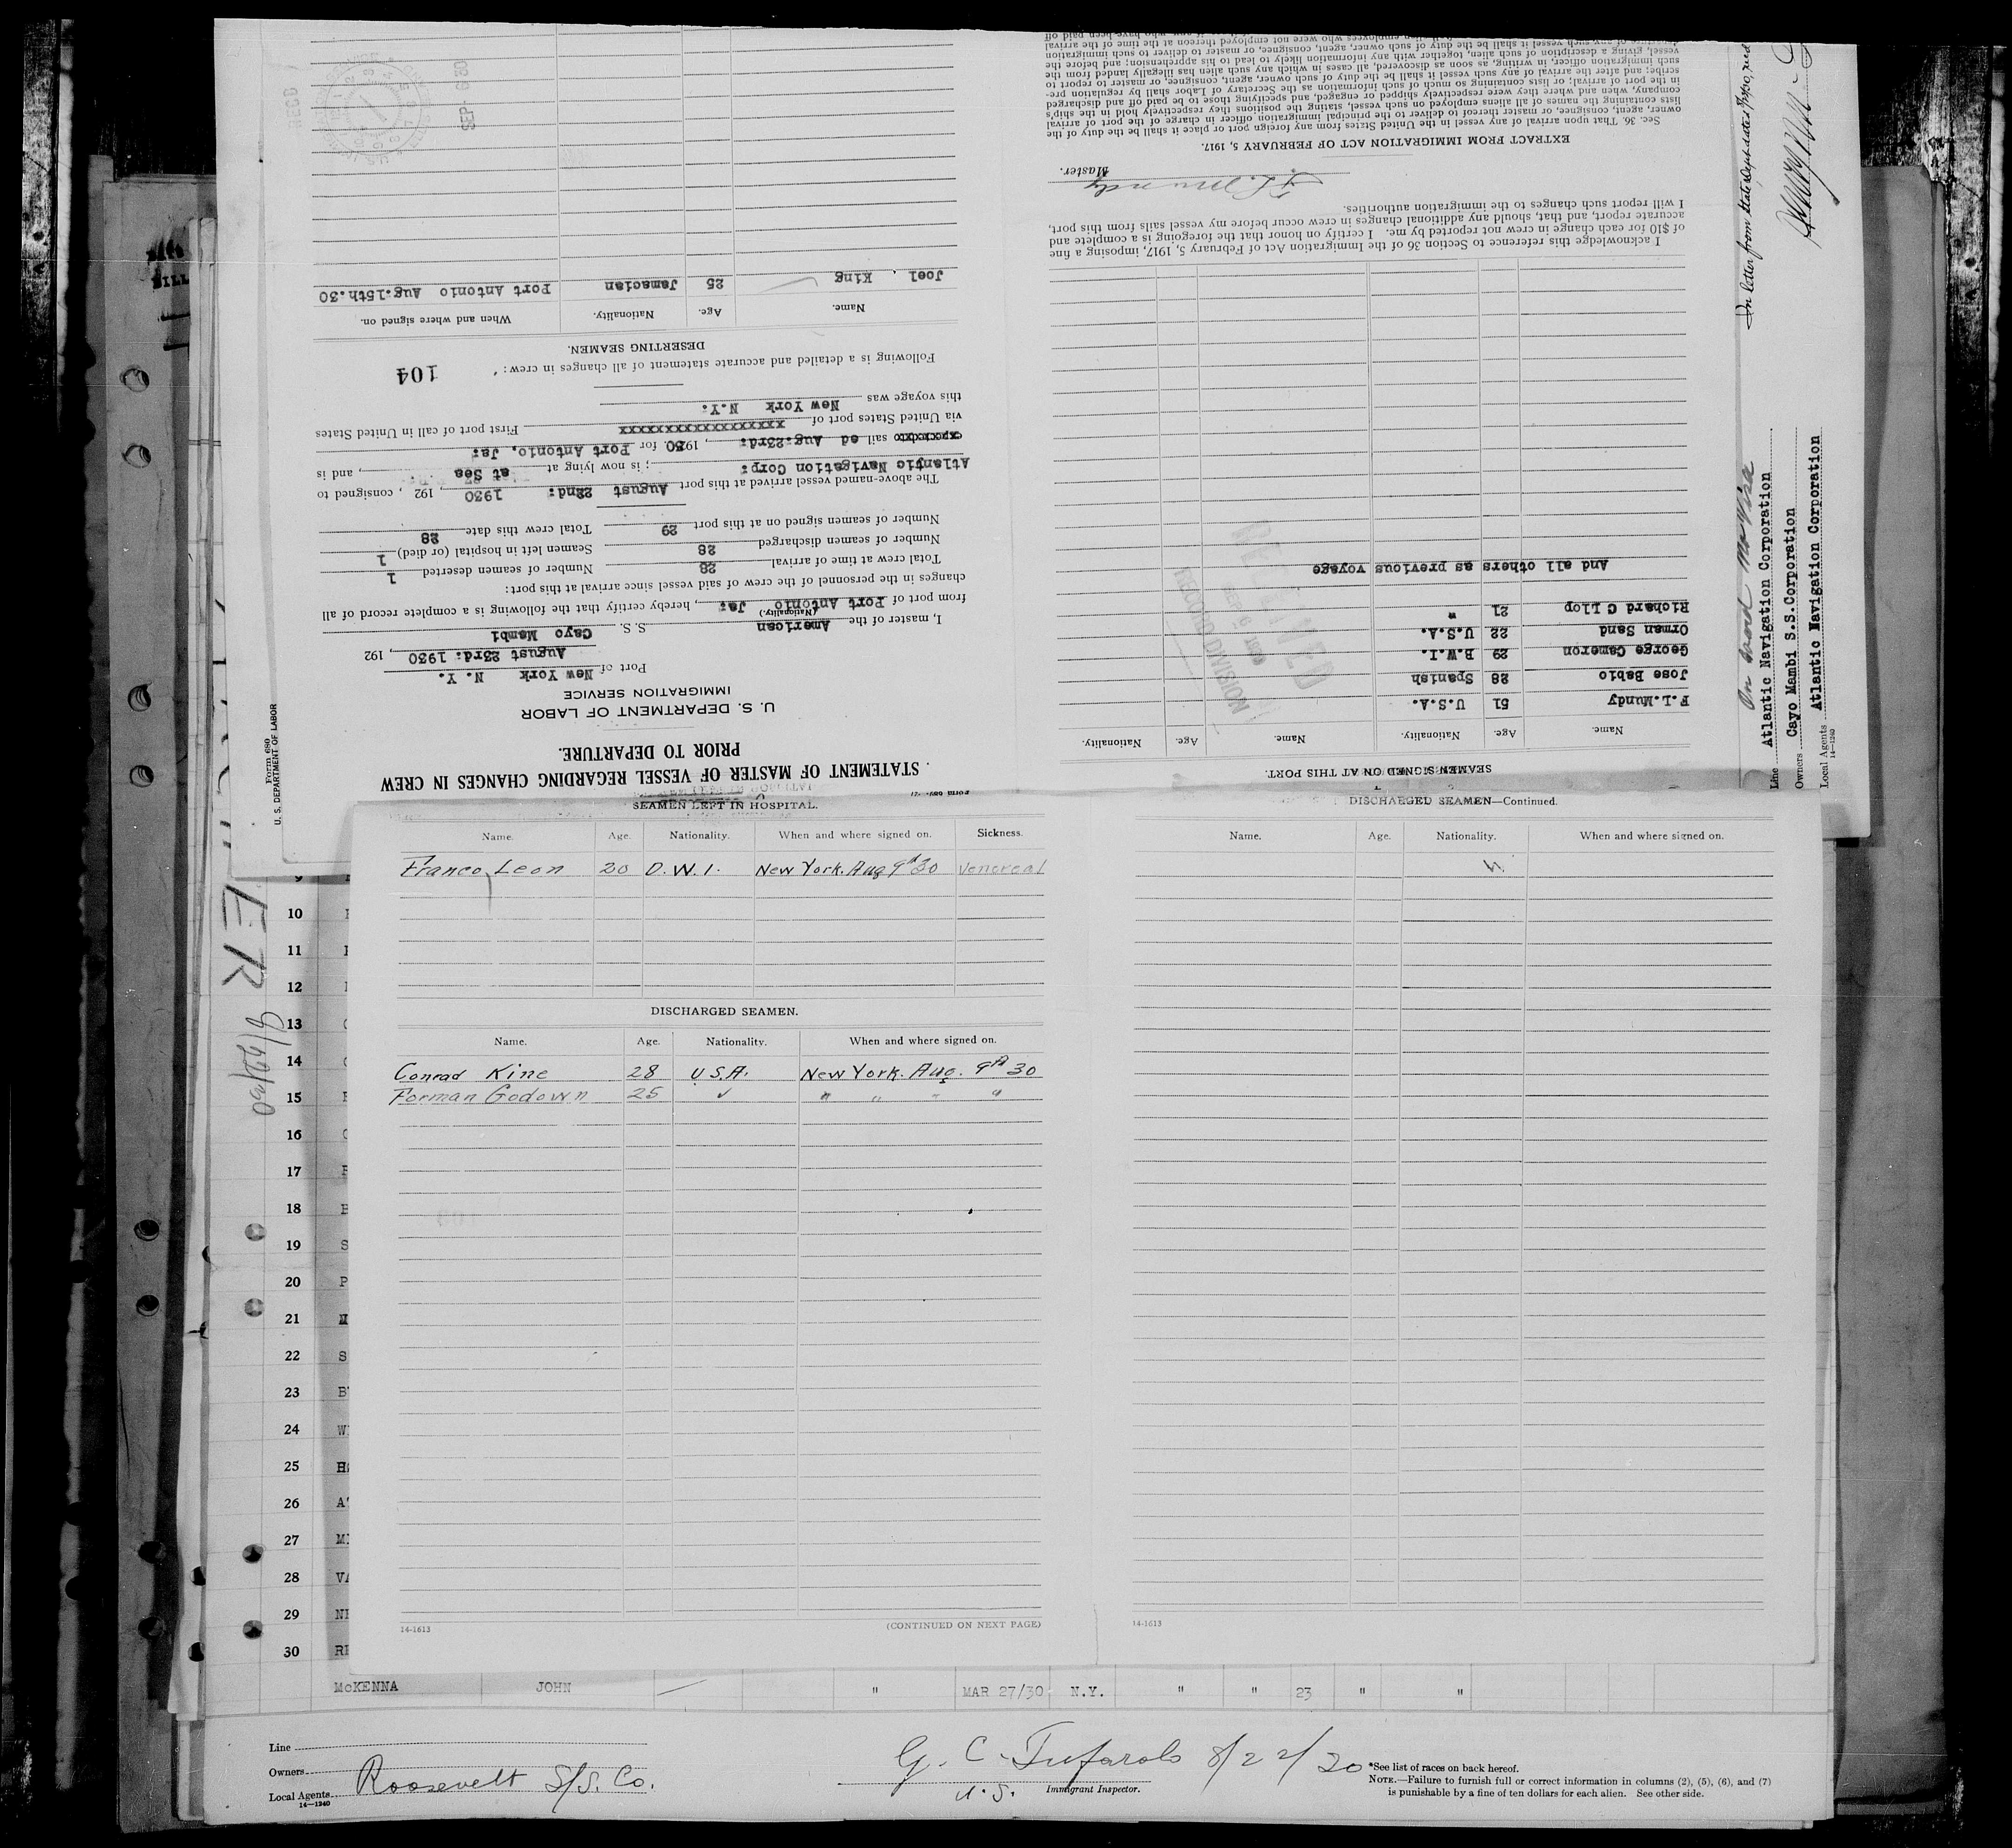 Form 680
U. S. DEPARTMENT OF LABOR
STATEMENT OF MASTER OF VESSEL REGARDING CHANGES IN CREW
PRIOR TO DEPARTURE.
U. S. DEPARTMENT OF LABOR
IMMIGRATION SERVICE
Port of New York N. Y.
August 23rd: 1930, 192
I, master of the American S. S. Cayo Mambi
(Nationality)
from port of Port Antonio Ja:, hereby certify that the following is a complete record of all
changes in the personnel of the crew of said vessel since arrival at this port:
Total crew at time of arrival 28 Number of seamen deserted 1
Number of seamen discharged 28 Seamen left in hospital (or died) 1
Number of seamen signed on at this port 29 Total crew this date 28
The above-named vessel arrived at this port August 22nd: 1930, 192 , consigned to
Atlantic Navigation Corp: ; is now lying at at Sea , and is
sail ed Aug:23rd:, 1930 for Port Antonio, Ja:
via United States port of xxxxxxxxxxxxxxxxxxx First port of call in United States
this voyage was New York N.Y.
Following is a detailed and accurate statement of all changes in crew:
104
DESERTING SEAMEN.
Name. Age. Nationality. When and where signed on.
Joel King 25 Jamacian Port Antonio Aug:15th.30
SEAMEN SIGNED ON AT THIS PORT.
Name. Age. Nationality. Name. Age. Nationality.
F.L.Mundy 51 U.S.A.
Jose Babio 28 Spanish
George Cameron 29 B.W.I.
Orman Sand 22 U.S.A.
Richard C Llop 21 "
And all others as previous voyage
RECEIVED
RECORD DIVISION
I acknowledge this reference to Section 36 of the Immigration Act of February 5, 1917, imposing a fine
of $10 for each change in crew not reported by me. I certify on honor that the foregoing is a complete and
accurate report, and that, should any additional changes in crew occur before my vessel sails from this port,
I will report such changes to the immigration authorities.
F. L. Mundy
Master.
EXTRACT FROM IMMIGRATION ACT OF FEBRUARY 5, 1917.
Sec. 36. That upon arrival of any vessel in the United States from any foreign port or place it shall be the duty of the
owner, agent, consignee, or master thereof to deliver to the principal immigration officer in charge of the port of arrival
lists containing the names of all aliens employed on such vessel, stating the positions they respectively hold in the ship's
company, when and where they were respectively shipped or engaged, and specifying those to be paid off and discharged
in the port of arrival; or lists containing so much of such information as the Secretary of Labor shall by regulation pre-
scribe; and after the arrival of any such vessel it shall be the duty of such owner, agent, consignee, or master to report to
such immigration officer, in writing, as soon as discovered, all cases in which any such alien has illegally landed from the
vessel, giving a description of such alien, together with any information likely to lead to his apprehension; and before the
Line Atlantic Navigation Corporation
Owners Cayo Mambi S.S.Corporation
Local Agents Atlantic Navigation Corporation
14—1240
SEAMEN LEFT IN HOSPITAL.
Name. Age. Nationality. When and where signed on. Sickness.
Franco, Leon 20 D.W.I. New York. Aug 9th 30 Venereal
DISCHARGED SEAMEN.
Name. Age. Nationality. When and where signed on.
Conrad Kine 28 U.S.A. New York. Aug. 9th 30
Forman Godown 25 " " " " "
14-1613 (CONTINUED ON NEXT PAGE)
DISCHARGED SEAMEN—Continued.
Name. Age. Nationality. When and where signed on.
14-1613
ER
8/22/30
10
11
12
13
14
15
16
17
18
19
20
21
22
23
24
25
26
27
28
29
30
McKENNA JOHN " MAR 27/30 N.Y. " " 23 " "
Line
Owners
Local Agents Roosevelt S/S. Co.
14—1240
8/22/30
U.S. Immigrant Inspector.
*See list of races on back hereof.
NOTE.—Failure to furnish full or correct information in columns (2), (5), (6), and (7)
is punishable by a fine of ten dollars for each alien. See other side.